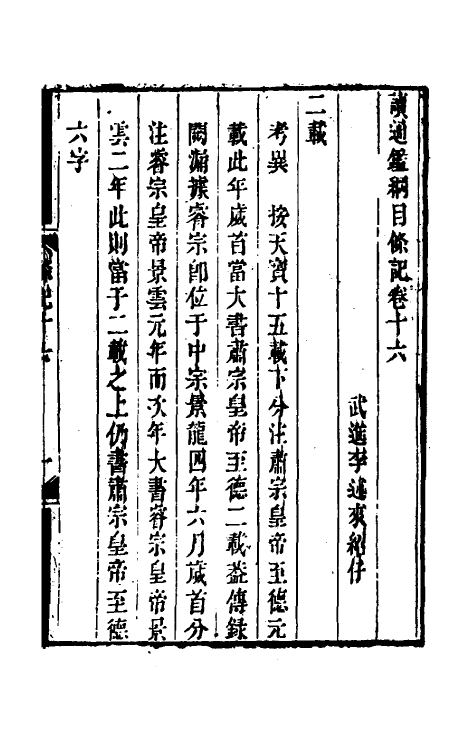 讀通鑑綱目條記卷十六
武進李述來紹仔
二載
考異　按天寶十五載下分注肅宗皇帝至德元
載此年歲首當大書肅宗皇帝至德二載葢傳錄
闕漏據睿宗卽位于中宗景龍四年六月歲首分
注睿宗皇帝景雲元年而次年大書睿宗皇帝景
雲二年此則當于二載之上仍書肅宗皇帝至德
六字
條記十六
一